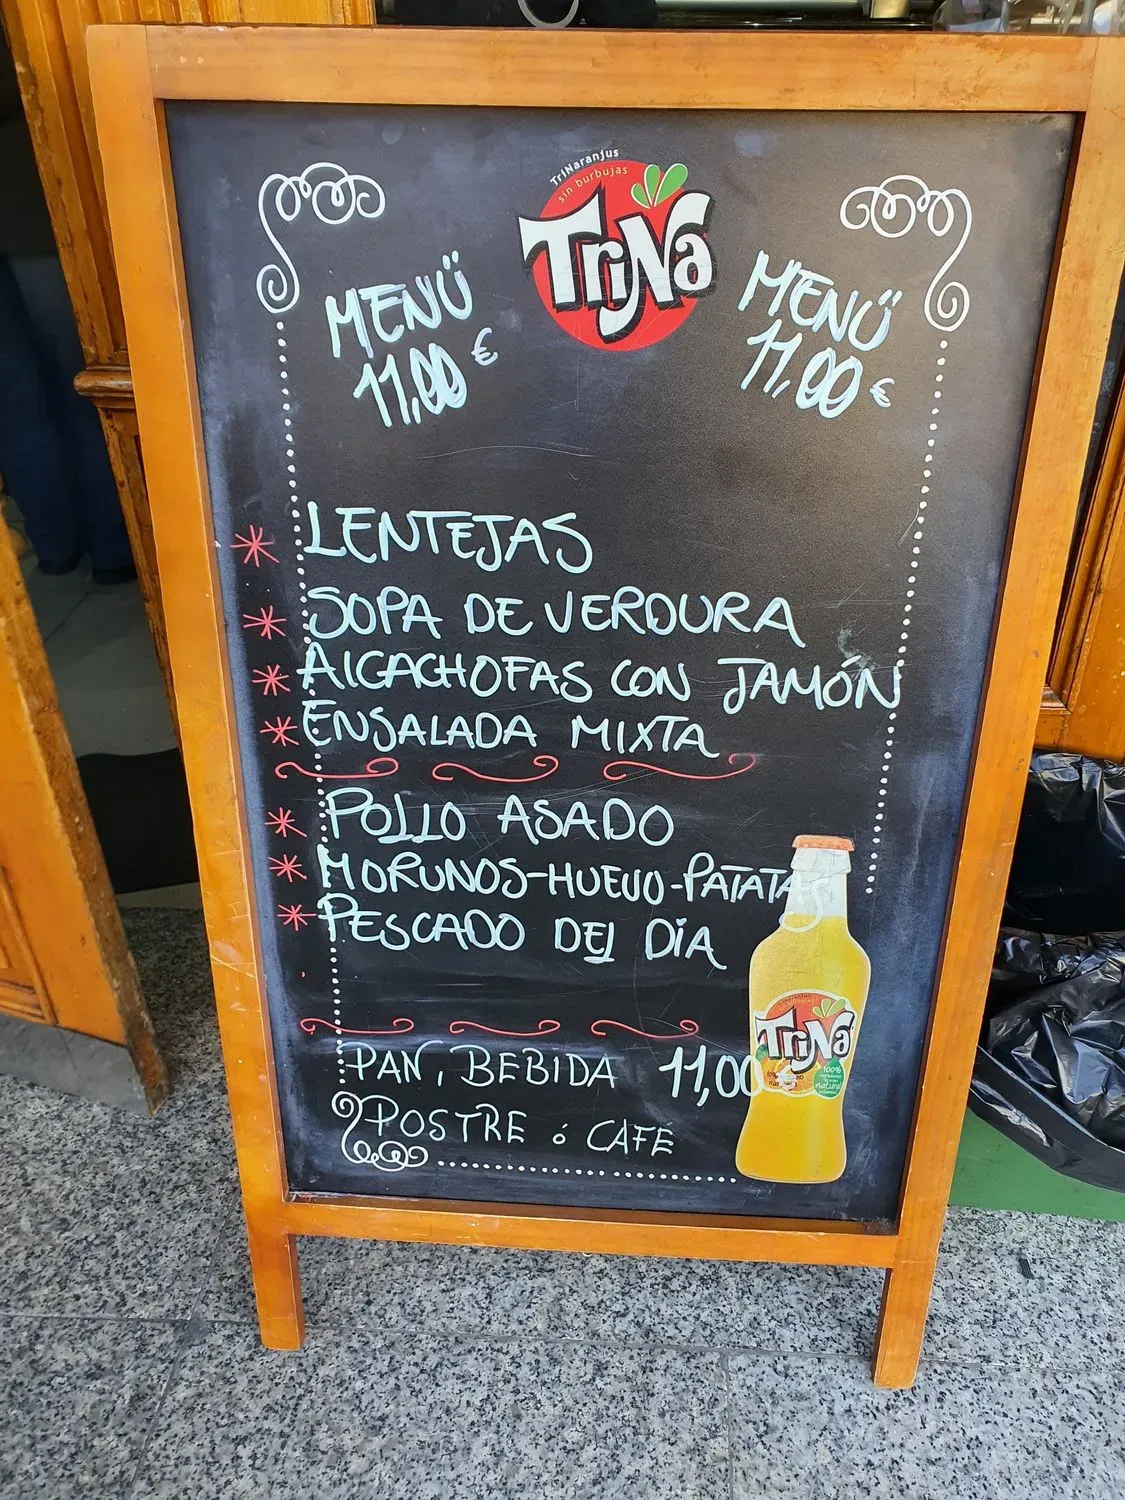 TriNaranjus
sin burbujas
TriNa
MENÜ
11,00 €
MENÜ
11,00 €
* LENTEJAS
* SOPA DE VERDURA
* AlCACHOFAS CON JAMÓN
* ENSALADA MIXTA
* POLLO ASADO
* MORUNOS-HUEVO-PATATAS
* PESCADO DEL DÍA
PAN, BEBIDA 11,00
POSTRE ó CAFÉ
TriNa
100%
natural